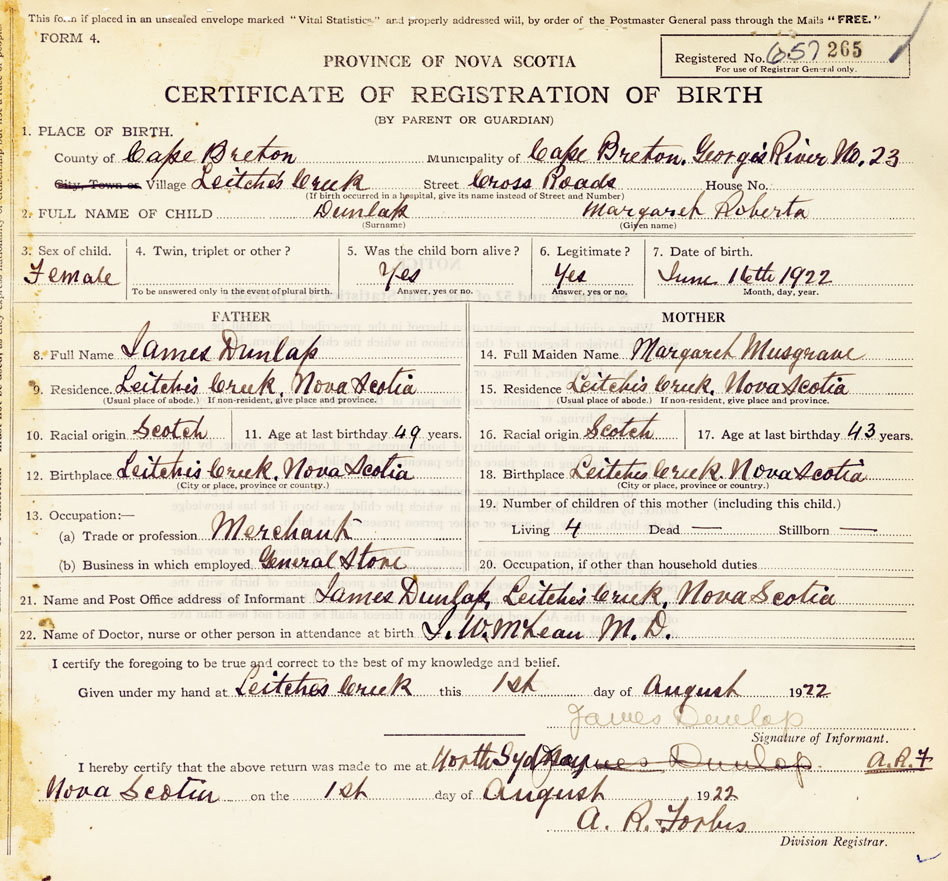 This form if placed in an unsealed envelope marked "Vital Statistics" and properly addressed will, by order of the Postmaster General pass through the Mails "FREE."
FORM 4.
Registered No. 657 265
For use of Registrar General only.
PROVINCE OF NOVA SCOTIA
CERTIFICATE OF REGISTRATION OF BIRTH
(BY PARENT OR GUARDIAN)
1. PLACE OF BIRTH.
County of Cape Breton Municipality of Cape Breton. George's River No. 23
City, Town or Village Leitche's Creek Street Cross Roads House No.
(If birth occurred in a hospital, give its name instead of Street and Number)
2. FULL NAME OF CHILD Dunlap Margaret Roberta
(Surname) (Given name)
3. Sex of child. 4. Twin, triplet or other? 5. Was the child born alive? 6. Legitimate? 7. Date of birth.
Female Yes Yes June 16th 1922
To be answered only in the event of plural birth. Answer, yes or no. Answer, yes or no. Month, day, year.
FATHER MOTHER
8. Full Name James Dunlap 14. Full Maiden Name Margaret Musgrave
9. Residence Leitche's Creek, Nova Scotia 15. Residence Leitche's Creek, Nova Scotia
(Usual place of abode.) If non-resident, give place and province. (Usual place of abode.) If non-resident, give place and province.
10. Racial origin Scotch 11. Age at last birthday 49 years. 16. Racial origin Scotch 17. Age at last birthday 43 years.
12. Birthplace Leitche's Creek, Nova Scotia 18. Birthplace Leitche's Creek, Nova Scotia
(City or place, province or country.) (City or place, province or country.)
13. Occupation:— 19. Number of children of this mother (including this child.)
(a) Trade or profession Merchant Living 4 Dead — Stillborn —
(b) Business in which employed General Store 20. Occupation, if other than household duties
21. Name and Post Office address of Informant James Dunlap, Leitche's Creek, Nova Scotia
22. Name of Doctor, nurse or other person in attendance at birth J. W. McLean M. D.
I certify the foregoing to be true and correct to the best of my knowledge and belief.
Given under my hand at Leitches Creek this 1st day of August 1922
James Dunlap
Signature of Informant.
I hereby certify that the above return was made to me at North Sydney James Dunlap A.R.F
Nova Scotia on the 1st day of August 1922
A. R. Forbes
Division Registrar.